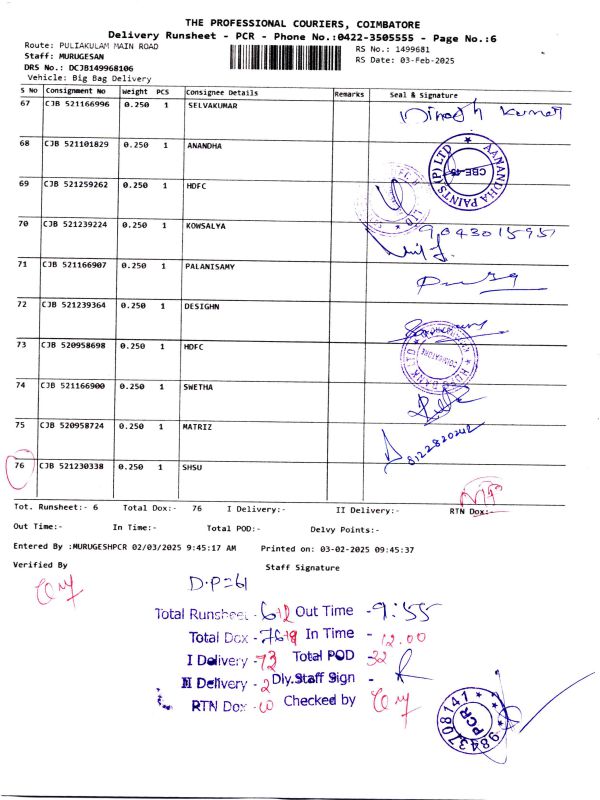 THE PROFESSIONAL COURIERS, COIMBATORE
Delivery Runsheet - PCR - Phone No.:0422-3505555 - Page No.:6
Route: PULIAKULAM MAIN ROAD
RS No.: 1499681
Staff: MURUGESAN
RS Date: 03-Feb-2025
DRS No.: DCJB149968106
Vehicle: Big Bag Delivery
S No Consignment No Weight PCS Consignee Details Remarks Seal & Signature
67 CJB 521166996 0.250 1 SELVAKUMAR Dinesh Kumar
68 CJB 521101829 0.250 1 ANANDHA
AANANDHA PAINTS (P) LTD
69 CJB 521259262 0.250 1 HDFC
70 CJB 521239224 0.250 1 KOWSALYA
71 CJB 521166907 0.250 1 PALANISAMY
72 CJB 521239364 0.250 1 DESIGHN
73 CJB 520958698 0.250 1 HDFC
HDFC BANK LTD
COIMBATORE
74 CJB 521166900 0.250 1 SWETHA
75 CJB 520958724 0.250 1 MATRIZ
8122820242
76 CJB 521230338 0.250 1 SHSU
Tot. Runsheet:- 6 Total Dox:- 76 I Delivery:- II Delivery:- RTN Dox:-
Out Time:- In Time:- Total POD:- Delvy Points:-
Entered By :MURUGESHPCR 02/03/2025 9:45:17 AM Printed on: 03-02-2025 09:45:37
Verified By Staff Signature
D.P=61
Total Runsheet - 6+2 Out Time - 9:55
Total Dox - 76+9 In Time - 12.00
I Delivery - 73 Total POD - 32
II Delivery - 2 Dly.Staff Sign -
RTN Dox - Checked by
PCR
9843708141